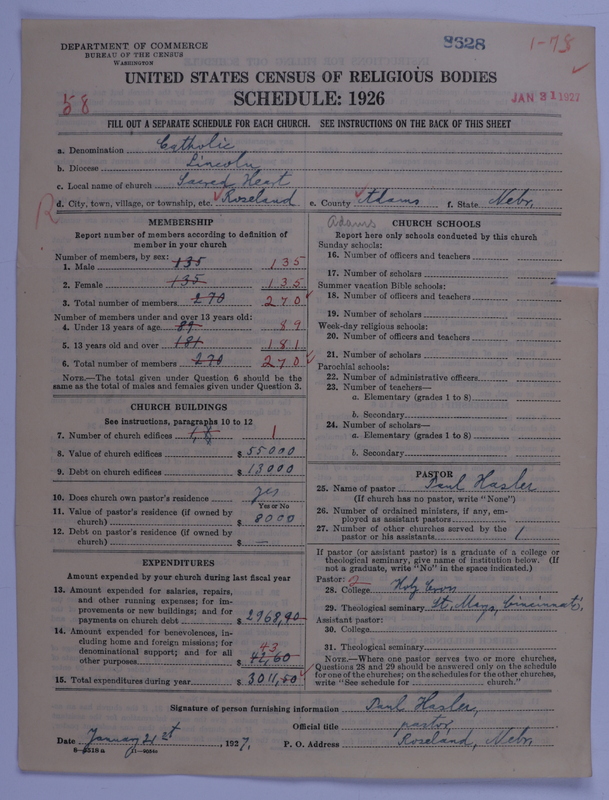 DEPARTMENT OF COMMERCE
BUREAU OF THE CENSUS
WASHINGTON
8628
1-78
UNITED STATES CENSUS OF RELIGIOUS BODIES
58
SCHEDULE: 1926
JAN 31 1927
FILL OUT A SEPARATE SCHEDULE FOR EACH CHURCH. SEE INSTRUCTIONS ON THE BACK OF THIS SHEET
a. Denomination Catholic
b. Diocese Lincoln
c. Local name of church Sacred Heart
R
d. City, town, village, or township, etc. Roseland e. County Adams f. State Nebr.
MEMBERSHIP
Report number of members according to definition of
member in your church
Number of members, by sex:
1. Male 135 135
2. Female 135 135
3. Total number of members 270 270
Number of members under and over 13 years old:
4. Under 13 years of age 89 89
5. 13 years old and over 181 181
6. Total number of members 270 270
NOTE.—The total given under Question 6 should be
same as the total of males and females given under Question 3.
CHURCH BUILDINGS
See instructions, paragraphs 10 to 12
7. Number of church edifices 1
8. Value of church edifices $ 55000
9. Debt on church edifices $ 13000
10. Does church own pastor's residence yes
Yes or No
11. Value of pastor's residence (if owned by
church) $ 8000
12. Debt on pastor's residence (if owned by
church) $ —
EXPENDITURES
Amount expended by your church during last fiscal year
13. Amount expended for salaries, repairs,
and other running expenses; for im-
provements or new buildings; and for
payments on church debt $ 2968,90
14. Amount expended for benevolences, in-
cluding home and foreign missions; for
denominational support; and for all
other purposes $ 42,60
43
15. Total expenditures during year $ 3011,50
Adams
CHURCH SCHOOLS
Report here only schools conducted by this church
Sunday schools:
16. Number of officers and teachers
17. Number of scholars
Summer vacation Bible schools:
18. Number of officers and teachers
19. Number of scholars
Week-day religious schools:
20. Number of officers and teachers
21. Number of scholars
Parochial schools:
22. Number of administrative officers
23. Number of teachers—
a. Elementary (grades 1 to 8)
b. Secondary
24. Number of scholars—
a. Elementary (grades 1 to 8)
b. Secondary
PASTOR
25. Name of pastor Paul Hasler
(If church has no pastor, write "None")
26. Number of ordained ministers, if any, em-
ployed as assistant pastors
27. Number of other churches served by the
pastor or his assistants 1
If pastor (or assistant pastor) is a graduate of a college or
theological seminary, give name of institution below. (If
not a graduate, write "No" in the space indicated.)
Pastor: 2
28. College Holy Cross
29. Theological seminary St. Marys, Cincinnati,
Assistant pastor:
30. College
31. Theological seminary
NOTE.—Where one pastor serves two or more churches,
Questions 28 and 29 should be answered only on the schedule
for one of the churches; on the schedules for the other churches,
write "See schedule for church."
Signature of person furnishing information Paul Hasler,
Official title pastor,
Date January 21st, 1927. P. O. Address Roseland, Nebr.